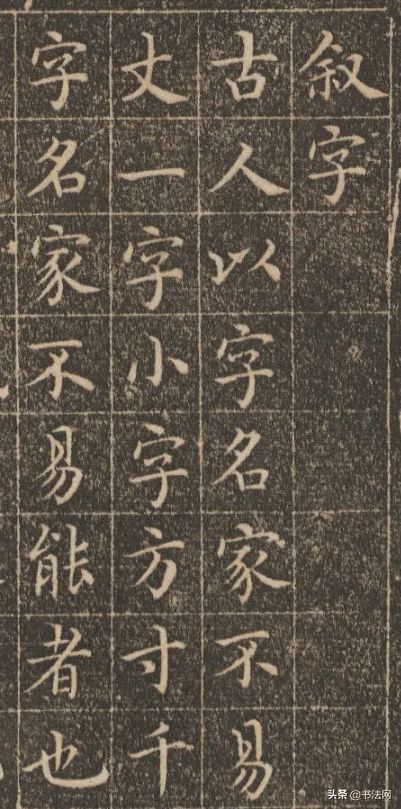 叙字
古人以字名家不易
丈一字小字方寸千
字名家不易能者也
头条 @书法网